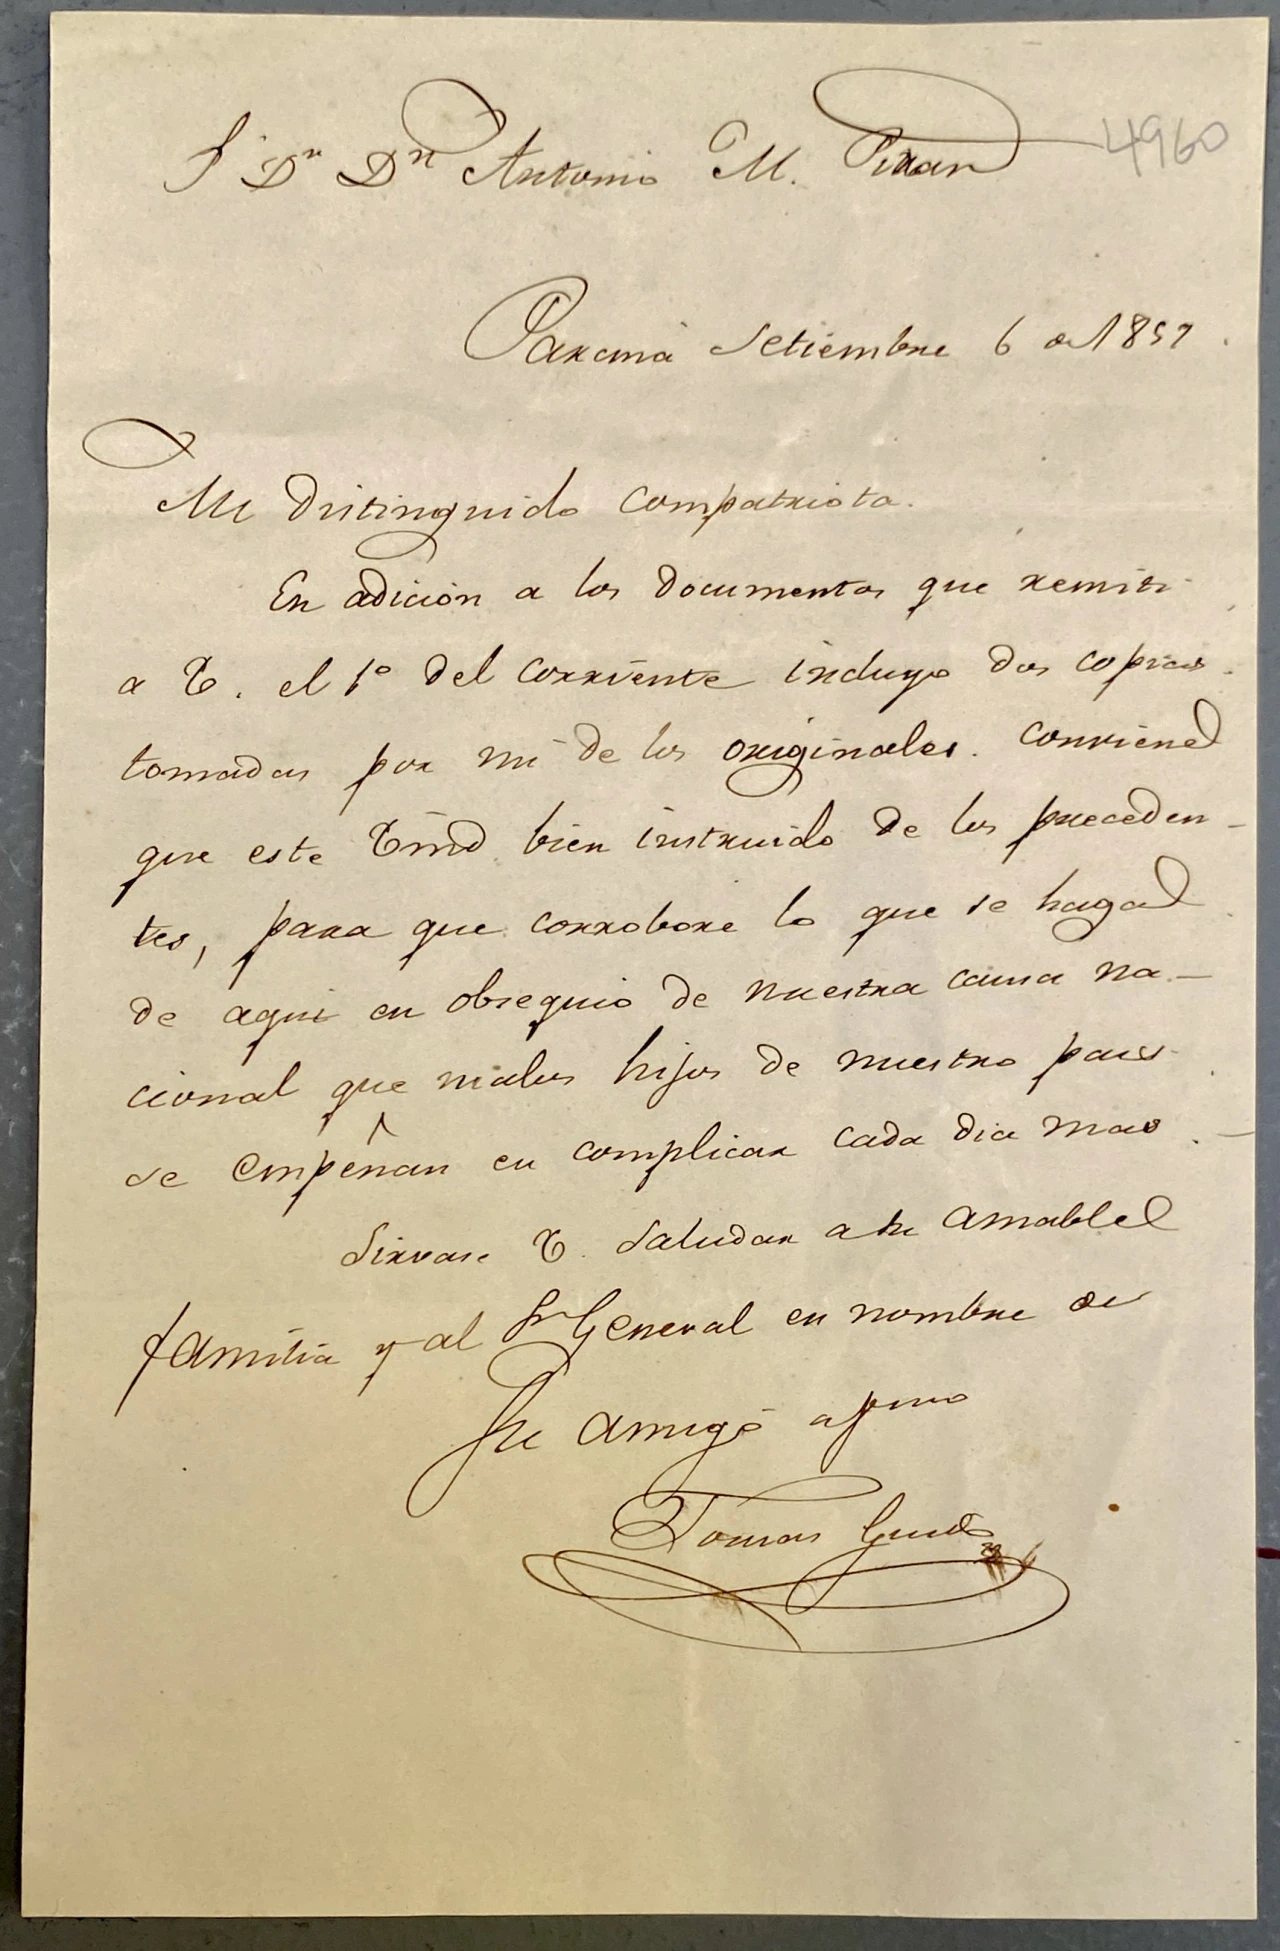 S. Dr Dn Antonio M. Piran 4960
Paraná Setiembre 6 de 1857.
Mi distinguido compatriota.
En adición a los documentos que remiti
a V. el 1º del corriente incluyo dos copias
tomadas por mi de los originales. Conviene
que este Vmd bien instruido de los preceden-
tes, para que corrobore lo que se haga
de aqui en obsequio de nuestra causa na-
cional que malos hijos de nuestro pais
se empeñan en complicar cada dia mas.-
Sirvase V. saludar a su amable
familia y al Sr General en nombre de
Su amigo afmo
Tomas Guido